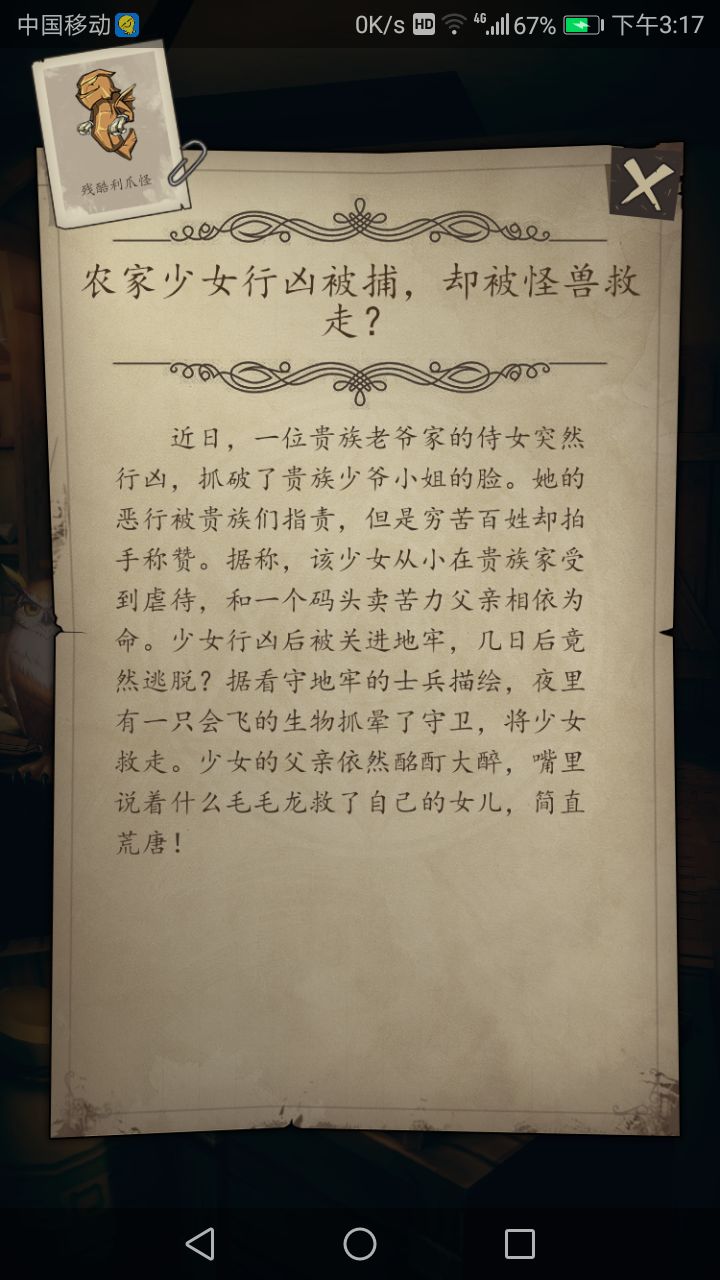 中国移动
0K/s HD 4G 67% 下午3:17
残酷利爪怪
农家少女行凶被捕，却被怪兽救
走？
近日，一位贵族老爷家的侍女突然
行凶，抓破了贵族少爷小姐的脸。她的
恶行被贵族们指责，但是穷苦百姓却拍
手称赞。据称，该少女从小在贵族家受
到虐待，和一个码头卖苦力父亲相依为
命。少女行凶后被关进地牢，几日后竟
然逃脱？据看守地牢的士兵描绘，夜里
有一只会飞的生物抓晕了守卫，将少女
救走。少女的父亲依然酩酊大醉，嘴里
说着什么毛毛龙救了自己的女儿，简直
荒唐！